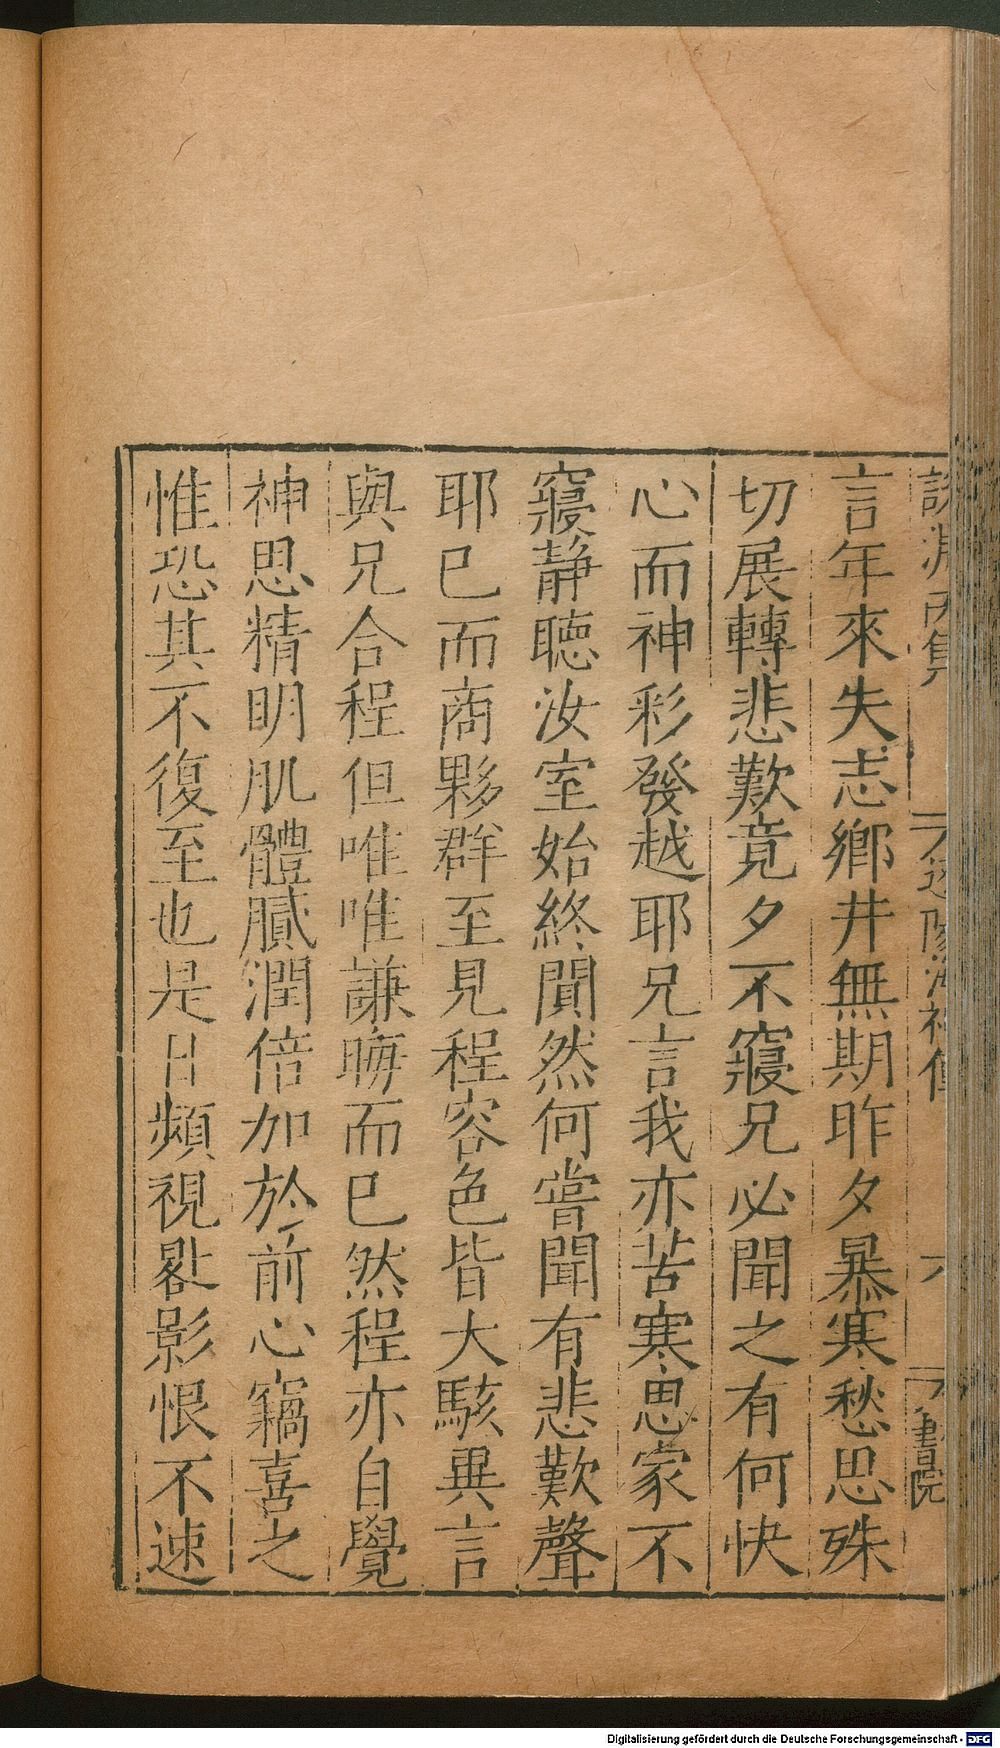 說淵丙集 遼陽海神傳 六 書院
言年來失志鄉井無期昨夕暴寒愁思殊
切展轉悲歎竟夕不寢兄必聞之有何快
心而神彩發越耶兄言我亦苦寒思家不
寢靜聽汝室始終闃然何嘗聞有悲歎聲
耶已而商夥群至見程容色皆大駭異言
與兄合程但唯唯謙晦而已然程亦自覺
神思精明肌體膩潤倍加於前心竊喜之
惟恐其不復至也是日頻視晷影恨不速
Digitalisierung gefördert durch die Deutsche Forschungsgemeinschaft - DFG